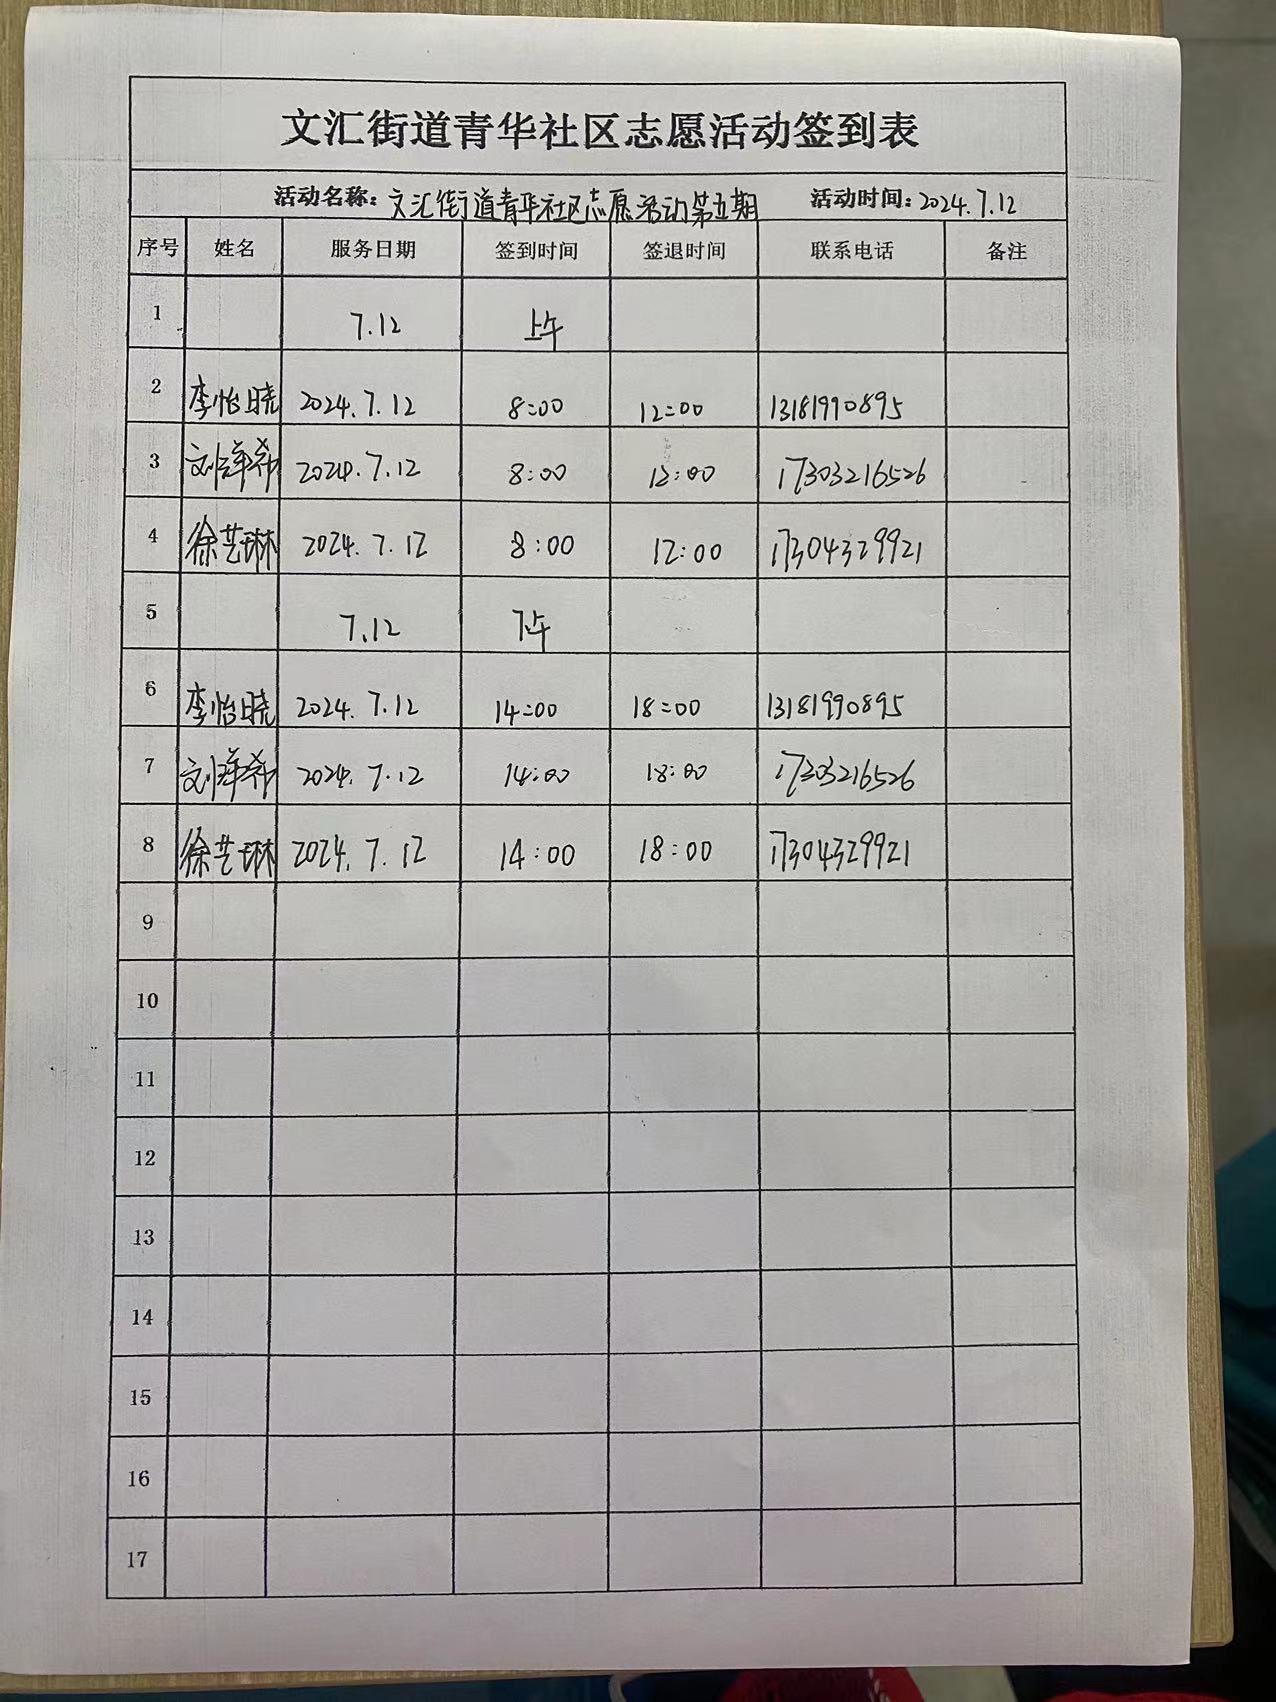 文汇街道青华社区志愿活动签到表
活动名称：文汇街道青华社区志愿活动第五期 活动时间：2024.7.12
序号 姓名 服务日期 签到时间 签退时间 联系电话 备注
1 7.12 上午
2 李怡晓 2024.7.12 8:00 12:00 13181990895
3 刘泽希 2024.7.12 8:00 12:00 17303216526
4 徐艺琳 2024.7.12 8:00 12:00 17304329921
5 7.12 下午
6 李怡晓 2024.7.12 14:00 18:00 13181990895
7 刘泽希 2024.7.12 14:00 18:00 17303216526
8 徐艺琳 2024.7.12 14:00 18:00 17304329921
9
10
11
12
13
14
15
16
17